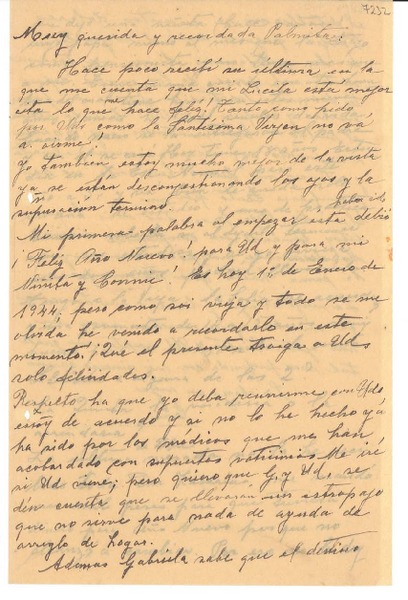 7232
Muy querida y recordada Palmita:
Hace poco recibí su última en la
que me cuenta que mi Lucila está mejor
ésta lo que me hace feliz! Tanto como pido
por Uds como la Santísima Virjen no vá
a oirme!
Yo tambien estoy mucho mejor de la vista
ya se están descongestionando los ojos y la
supuración terminó.
Mi primera palabra al empezar ésta debió
¡Feliz Año Nuevo! para Ud y para mi
Niñita y Connie! Es hoy 1º de Enero de
1944, pero como soi vieja y todo se me
olvida he venido a recordarlo en este
momento. ¡Qué el presente traiga a Uds
solo felicidades.
Respecto, ha que yo deba reunirme con Uds
estoy de acuerdo y si no lo he hecho yá
ha sido por los medicos que me han
acobardado con supuestos vaticinios Me iré
si Ud viene; pero quiero que G. y Ud, se
dén cuenta que se llevarán un estropajo
que no serve para nada de ayuda de
arreglo de hogar.
Ademas Gabriela sabe que el destino